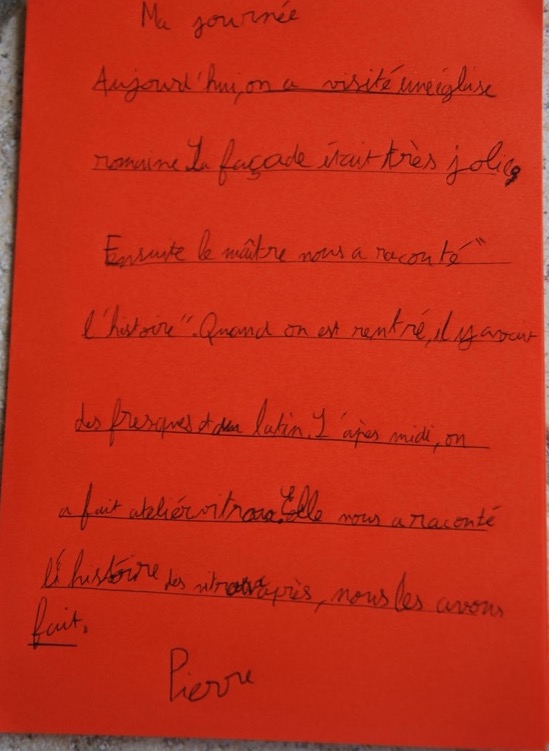 Ma journée
Aujourd'hui, on a visité une église
romaine. La façade était très jolie,
Ensuite le maître nous a raconté "
l'histoire". Quand on est rentré, il y avait
des fresques et du latin. L'apes midi, on
a fait ateliér vitraux. Elle nous a raconté
l'histoire des vitraux après, nous les avons
fait.
Pierre